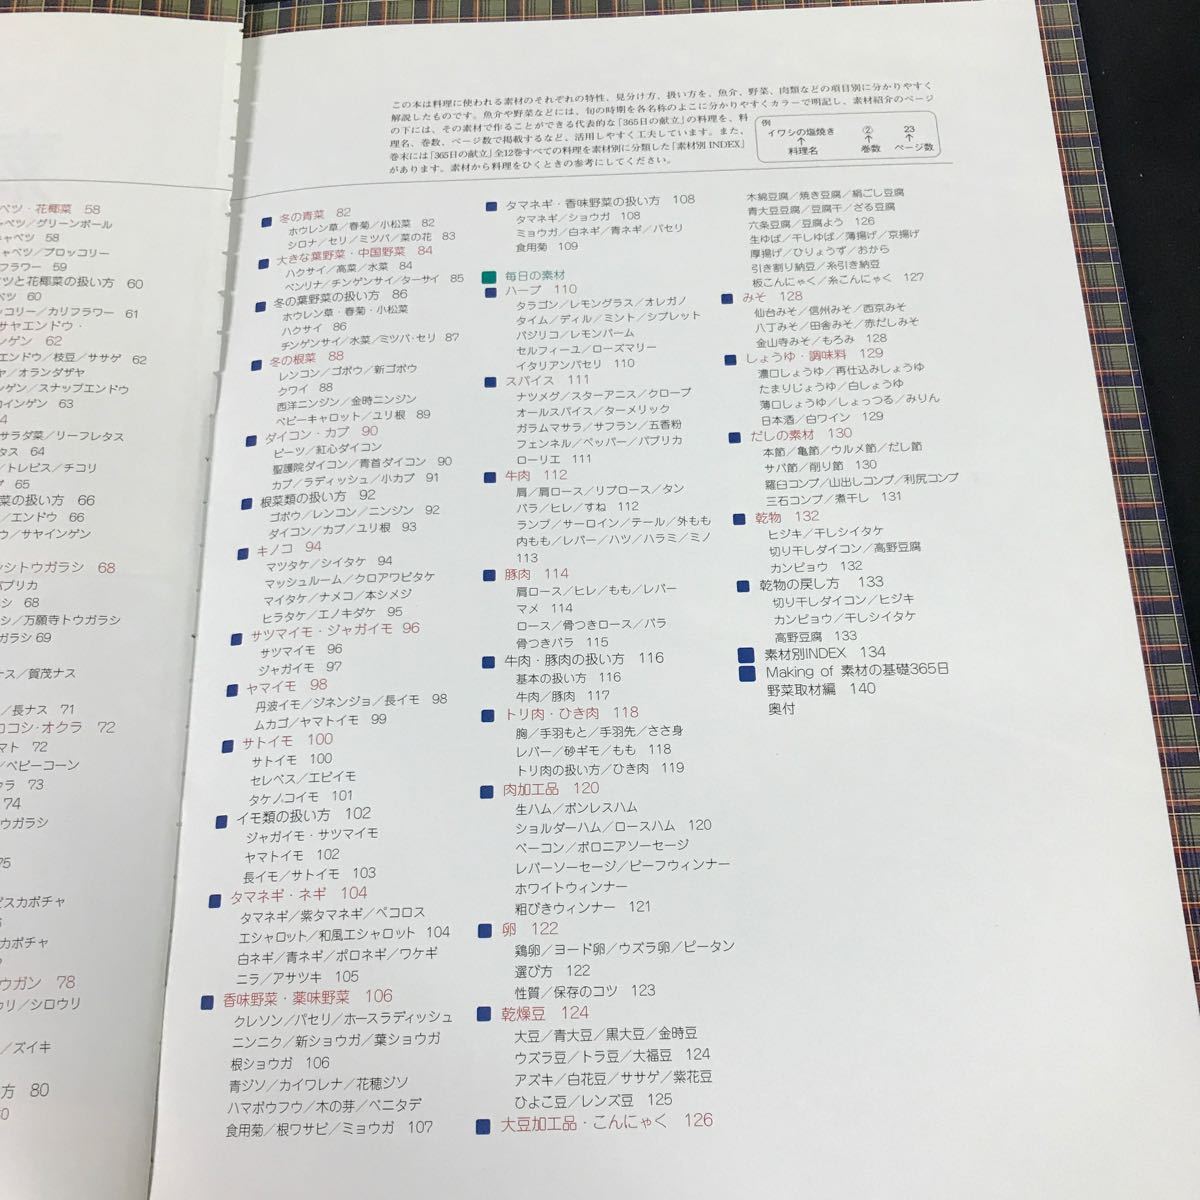 ベツ・花椰菜 58
ャベツ／グリーンボール
キャベツ 58
ャベツ／ブロッコリー
フラワー 59
ツと花椰菜の扱い方 60
ベツ 60
ッコリー／カリフラワー 61
サヤエンドウ・
ンゲン 62
エンドウ／枝豆／ササゲ 62
ヤ／オランダザヤ
ンゲン／スナップエンドウ
ロインゲン 63
4
サラダ菜／リーフレタス
タス 64
／トレビス／チコリ
65
菜の扱い方 66
／エンドウ 66
ウ／サヤインゲン
シシトウガラシ 68
パプリカ
シ 68
シ／万願寺トウガラシ
ガラシ 69
ナス／賀茂ナス
／長ナス 71
ロコシ・オクラ 72
マト 72
／ベビーコーン
クラ 73
74
ウガラシ
75
ピスカボチャ
カボチャ
ウガン 78
ウリ／シロウリ
／ズイキ
方 80
80
この本は料理に使われる素材のそれぞれの特性、見分け方、扱い方を、魚介、野菜、肉類などの項目別に分かりやすく
解説したものです。魚介や野菜などには、旬の時期を各名称のよこに分かりやすくカラーで明記し、素材紹介のページ
の下には、その素材で作ることができる代表的な「365日の献立」の料理を、料
理名、巻数、ページ数で掲載するなど、活用しやすく工夫しています。また、
巻末には「365日の献立」全12巻すべての料理を素材別に分類した「素材別 INDEX」
があります。素材から料理をひくときの参考にしてください。
例
イワシの塩焼き ② 23
↑ ↑ ↑
料理名 巻数 ページ数
冬の青菜 82
ホウレン草／春菊／小松菜 82
シロナ／セリ／ミツバ／菜の花 83
大きな葉野菜・中国野菜 84
ハクサイ／高菜／水菜 84
ベンリナ／チンゲンサイ／ターサイ 85
冬の葉野菜の扱い方 86
ホウレン草・春菊・小松菜
ハクサイ 86
チンゲンサイ／水菜／ミツバ・セリ 87
冬の根菜 88
レンコン／ゴボウ／新ゴボウ
クワイ 88
西洋ニンジン／金時ニンジン
ベビーキャロット／ユリ根 89
ダイコン・カブ 90
ビーツ／紅心ダイコン
聖護院ダイコン／青首ダイコン 90
カブ／ラディッシュ／小カブ 91
根菜類の扱い方 92
ゴボウ／レンコン／ニンジン 92
ダイコン／カブ／ユリ根 93
キノコ 94
マツタケ／シイタケ 94
マッシュルーム／クロアワビタケ
マイタケ／ナメコ／本シメジ
ヒラタケ／エノキダケ 95
サツマイモ・ジャガイモ 96
サツマイモ 96
ジャガイモ 97
ヤマイモ 98
丹波イモ／ジネンジョ／長イモ 98
ムカゴ／ヤマトイモ 99
サトイモ 100
サトイモ 100
セレベス／エビイモ
タケノコイモ 101
イモ類の扱い方 102
ジャガイモ・サツマイモ
ヤマトイモ 102
長イモ／サトイモ 103
タマネギ・ネギ 104
タマネギ／紫タマネギ／ペコロス
エシャロット／和風エシャロット 104
白ネギ／青ネギ／ポロネギ／ワケギ
ニラ／アサツキ 105
香味野菜・薬味野菜 106
クレソン／パセリ／ホースラディッシュ
ニンニク／新ショウガ／葉ショウガ
根ショウガ 106
青ジソ／カイワレナ／花穂ジソ
ハマボウフウ／木の芽／ベニタデ
食用菊／根ワサビ／ミョウガ 107
タマネギ・香味野菜の扱い方 108
タマネギ／ショウガ 108
ミョウガ／白ネギ／青ネギ／パセリ
食用菊 109
毎日の素材
ハーブ 110
タラゴン／レモングラス／オレガノ
タイム／ディル／ミント／シブレット
バジリコ／レモンバーム
セルフィーユ／ローズマリー
イタリアンパセリ 110
スパイス 111
ナツメグ／スターアニス／クローブ
オールスパイス／ターメリック
ガラムマサラ／サフラン／五香粉
フェンネル／ペッパー／パプリカ
ローリエ 111
牛肉 112
肩／肩ロース／リブロース／タン
バラ／ヒレ／すね 112
ランプ／サーロイン／テール／外もも
内もも／レバー／ハツ／ハラミ／ミノ
113
豚肉 114
肩ロース／ヒレ／もも／レバー
マメ 114
ロース／骨つきロース／バラ
骨つきバラ 115
牛肉・豚肉の扱い方 116
基本の扱い方 116
牛肉／豚肉 117
トリ肉・ひき肉 118
胸／手羽もと／手羽先／ささ身
レバー／砂ギモ／もも 118
トリ肉の扱い方／ひき肉 119
肉加工品 120
生ハム／ボンレスハム
ショルダーハム／ロースハム 120
ベーコン／ボロニアソーセージ
レバーソーセージ／ビーフウィンナー
ホワイトウィンナー
粗びきウィンナー 121
卵 122
鶏卵／ヨード卵／ウズラ卵／ピータン
選び方 122
性質／保存のコツ 123
乾燥豆 124
大豆／青大豆／黒大豆／金時豆
ウズラ豆／トラ豆／大福豆 124
アズキ／白花豆／ササゲ／紫花豆
ひよこ豆／レンズ豆 125
大豆加工品・こんにゃく 126
木綿豆腐／焼き豆腐／絹ごし豆腐
青大豆豆腐／豆腐干／ざる豆腐
六条豆腐／豆腐よう 126
生ゆば／干しゆば／薄揚げ／京揚げ
厚揚げ／ひりょうず／おから
引き割り納豆／糸引き納豆
板こんにゃく／糸こんにゃく 127
みそ 128
仙台みそ／信州みそ／西京みそ
八丁みそ／田舎みそ／赤だしみそ
金山寺みそ／もろみ 128
しょうゆ・調味料 129
濃口しょうゆ／再仕込みしょうゆ
たまりじょうゆ／白しょうゆ
薄口しょうゆ／しょっつる／みりん
日本酒／白ワイン 129
だしの素材 130
本節／亀節／ウルメ節／だし節
サバ節／削り節 130
羅臼コンブ／山出しコンブ／利尻コンブ
三石コンブ／煮干し 131
乾物 132
ヒジキ／干しシイタケ
切り干しダイコン／高野豆腐
カンピョウ 132
乾物の戻し方 133
切り干しダイコン／ヒジキ
カンピョウ／干しシイタケ
高野豆腐 133
素材別INDEX 134
Making of 素材の基礎365日
野菜取材編 140
奥付